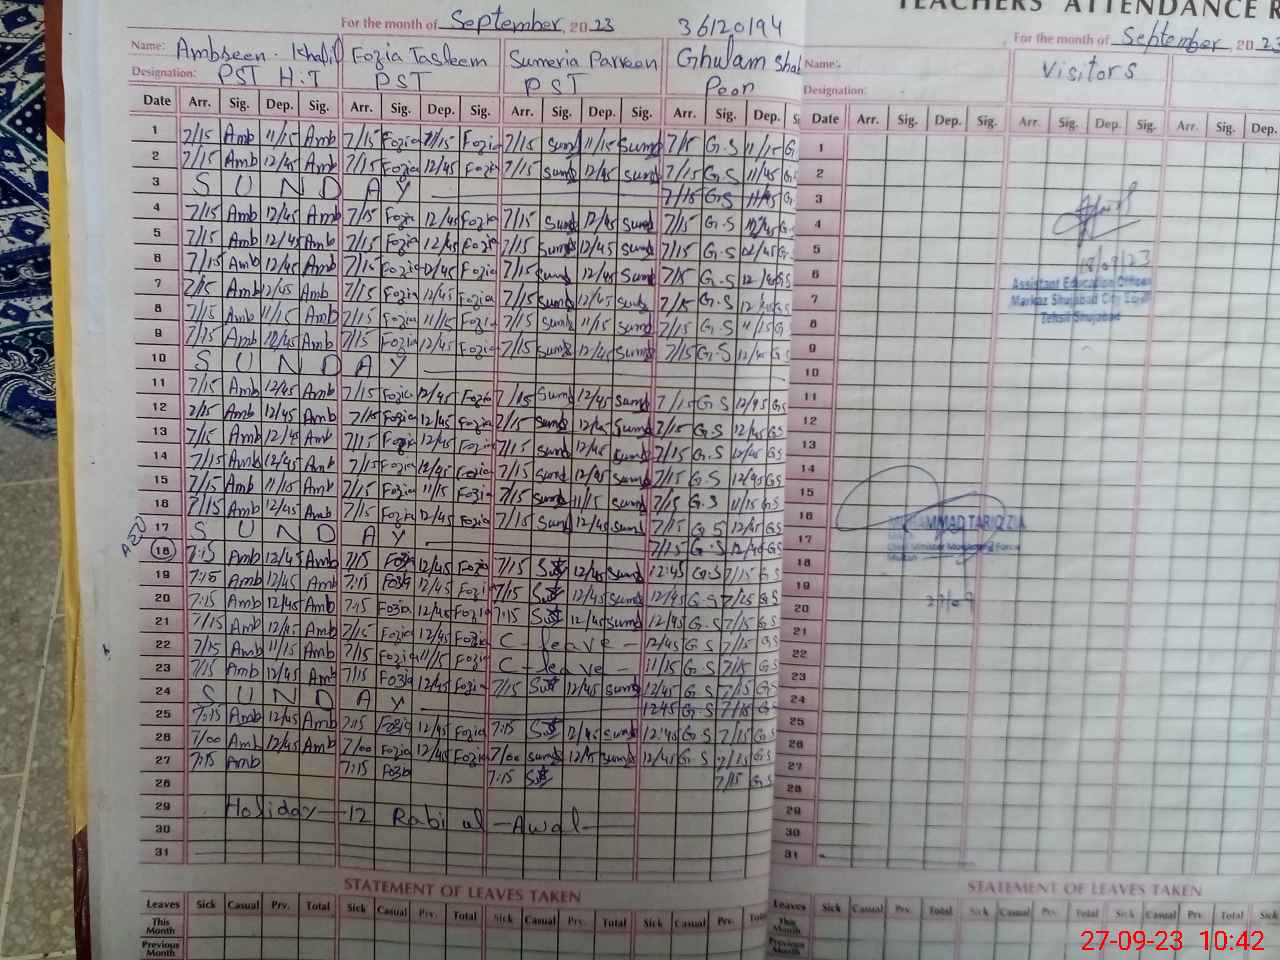 TEACHERS ATTENDANCE R
For the month of September, 2023 36120194
For the month of September 2023
Name: Ambreen Khalil Fozia Tasleem Sumeria Parveen Ghulam Shab
Name:- Visitors
Designation: PST H.T PST PST Peon
Designation:
Date Arr. Sig. Dep. Sig. Arr. Sig. Dep. Sig. Arr. Sig. Dep. Sig. Arr. Sig. Dep. S
Date Arr. Sig. Dep. Sig. Arr. Sig. Dep. Sig. Arr. Sig. Dep.
1 7/15 Amb 11/15 Amb 7/15 Fozia 11/15 Fozia 7/15 Sumd 11/15 Sumd 7/15 G.S 11/15 G.
2 7/15 Amb 12/45 Amb 7/15 Fozia 12/45 Fozia 7/15 Sumd 12/45 Sumd 7/15 G.S 11/45 G.S
3 SUNDAY 7/15 G.S 11/45 G.
4 7/15 Amb 12/45 Amb 7/15 Fozia 12/45 Fozia 7/15 Sumd 12/45 Sumd 7/15 G.S 12/45 G.
5 7/15 Amb 12/45 Amb 7/15 Fozia 12/45 Fozia 7/15 Sumd 12/45 Sumd 7/15 G.S 12/45 G.S
6 7/15 Amb 12/45 Amb 7/15 Fozia 12/45 Fozia 7/15 Sumd 12/45 Sumd 7/15 G.S 12/45 G.S
7 7/15 Amb 12/45 Amb 7/15 Fozia 12/45 Fozia 7/15 Sumd 12/45 Sumd 7/15 G.S G.S
8 7/15 Amb 11/15 Amb 7/15 Fozia 11/15 Fozia 7/15 Sumd 11/15 Sumd 7/15 G.S 11/15 G.
9 7/15 Amb 12/45 Amb 7/15 Fozia 12/45 Fozia 7/15 Sumd 12/45 Sumd 7/15 G.S 12/45 G.S
10 SUNDAY
11 7/15 Amb 12/45 Amb 7/15 Fozia 12/45 Fozia 7/15 Sumd 12/45 Sumd 7/15 G.S 12/45 G.S
12 7/15 Amb 12/45 Amb 7/15 Fozia 12/45 Fozia 7/15 Sumd 12/45 Sumd 7/15 G.S 12/45 G.S
13 7/15 Amb 12/45 Amb 7/15 Fozia 12/45 Fozia 7/15 Sumd 12/45 Sumd 7/15 G.S 12/45 G.S
14 7/15 Amb 12/45 Amb 7/15 Fozia 12/45 Fozia 7/15 Sumd 12/45 Sumd 7/15 G.S 12/45 G.S
15 7/15 Amb 11/15 Amb 7/15 Fozia 11/15 Fozia 7/15 Sumd 11/15 Sumd 7/15 G.S 11/15 G.S
16 7/15 Amb 12/45 Amb 7/15 Fozia 12/45 Fozia 7/15 Sumd 12/45 Sumd 7/15 G.S 12/45 G.S
17 SUNDAY 7/15 G.S 12/45 G.S
18 7:15 Amb 12/45 Amb 7/15 Fozia 12/45 Fozia 7/15 12/45 Sumd 12:45 G.S 7/15 G.S
19 7:15 Amb 12/45 Amb 7:15 Fozia 12/45 Fozia 7/15 12/45 Sumd 12/45 G.S 7/15 G.S
20 7:15 Amb 12/45 Amb 7:15 Fozia 12/45 Fozia 7:15 12/45 Sumd 12/45 G.S 7/15 G.S
21 7/15 Amb 12/45 Amb 7/15 Fozia 12/45 Fozia C-leave- 12/45 G.S 7/15 G.S
22 7/15 Amb 11/15 Amb 7/15 Fozia 11/15 Fozia C-leave- 11/15 G.S 7/15 G.S
23 7/15 Amb 12/45 Amb 7/15 Fozia 12/45 Fozia 7/15 12/45 Sumd 12/45 G.S 7/15 G.S
24 SUNDAY 12:45 G.S 7/15 G.
25 7:15 Amb 12/45 Amb 7:15 Fozia 12/45 Fozia 7:15 12/45 Sumd 12:45 G.S 7/15 G.S
26 7/00 Amb 12/45 Amb 7/00 Fozia 12/45 Fozia 7/00 Sumd 12/45 Sumd 12/45 G.S 7/15 G.S
27 7:15 Amb 7:15 Fozia 7:15 7/15 G.S
28
29 Holiday-12 Rabi ul-Awal-
30
31
STATEMENT OF LEAVES TAKEN
Leaves Sick Casual Prv. Total Sick Casual Prv. Total Sick Casual Prv. Total Sick Casual Prv. Total
This Month
Previous Month
1
2
3
4
5
6
7
8
9
10
11
12
13
14
15
16
17
18
19
20
21
22
23
24
25
26
27
28
29
30
31
18/09/23
Assistant Education Officer
Markaz Shujabad City
Tehsil Shujabad
MUHAMMAD TARIQ ZIA
27/09
STATEMENT OF LEAVES TAKEN
Leaves Sick Casual Prv. Total Sick Casual Prv. Total Sick Casual Prv. Total
This Month
Previous Month
27-09-23 10:42